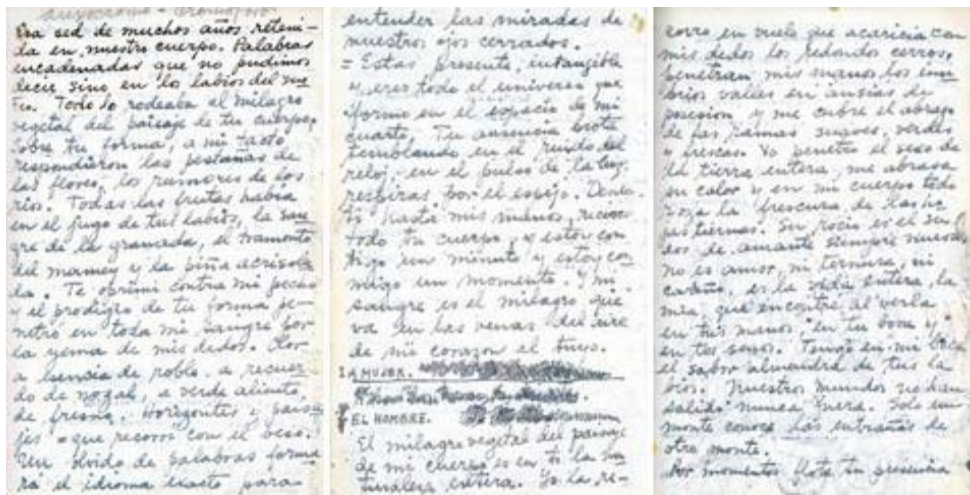 auxocromo - cromóforo
Era sed de muchos años reteni-
da en nuestro cuerpo. Palabras
encadenadas que no pudimos
decir sino en los labios del sue
ño. Todo lo rodeaba el milagro
vegetal del paisaje de tu cuerpo.
Sobre tu forma, a mi tacto
respondieron las pestañas de
las flores, los rumores de los
ríos. Todas las frutas había
en el jugo de tus labios, la san
gre de la granada, el tramonto
del mamey y la piña acrisola
da. Te oprimí contra mi pecho
y el prodigio de tu forma pe-
netró en toda mi sangre por
la yema de mis dedos. Olor
a esencia de roble, a recuer-
do de nogal, a verde aliento
de fresno. Horizontes y paisa
jes = que recorrí con el beso.
Un olvido de palabras forma
rá el idioma exacto para
entender las miradas de
nuestros ojos cerrados.
= Estas presente, intangible
y eres todo el universo que
formo en el espacio de mi
cuarto. Tu ausencia brota
temblando en el ruido del
reloj, en el pulso de la luz
respiras por el espejo. Desde
ti hasta mis manos, recorro
todo tu cuerpo, y estoy con
tigo un minuto y estoy con
migo un momento. Y mi
sangre es el milagro que
va en las venas del aire
de mi corazon al tuyo.
LA MUJER.
EL HOMBRE.
El milagro vegetal del paisaje
de mi cuerpo es en ti la na
turaleza entera. Yo la re-
corro en vuelo que acaricia con
mis dedos los redondos cerros,
penetran mis manos los um
bríos valles en ansias de
posesion y me cubre el abrazo
de las ramas suaves, verdes
y frescas. Yo penetro el sexo de
la tierra entera, me abrasa
su calor y en mi cuerpo todo
roza la frescura de las ho
jas tiernas. Su rocío es el su
dor de amante siempre nuevo.
no es amor, ni ternura, ni
cariño, es la vida entera, la
mia, que encontré al verla
en tus manos, en tu boca y
en tus senos. Tengo en mi boca
el sabor almendra de tus la
bios. Nuestros mundos no han
salido nunca fuera. Solo un
monte conoce las entrañas de
otro monte.
Por momentos flota tu presencia